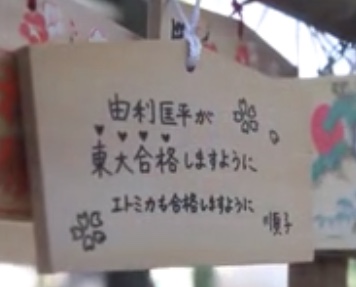 由利匡平が
東大合格しますように
エトミカも合格しますように
順子